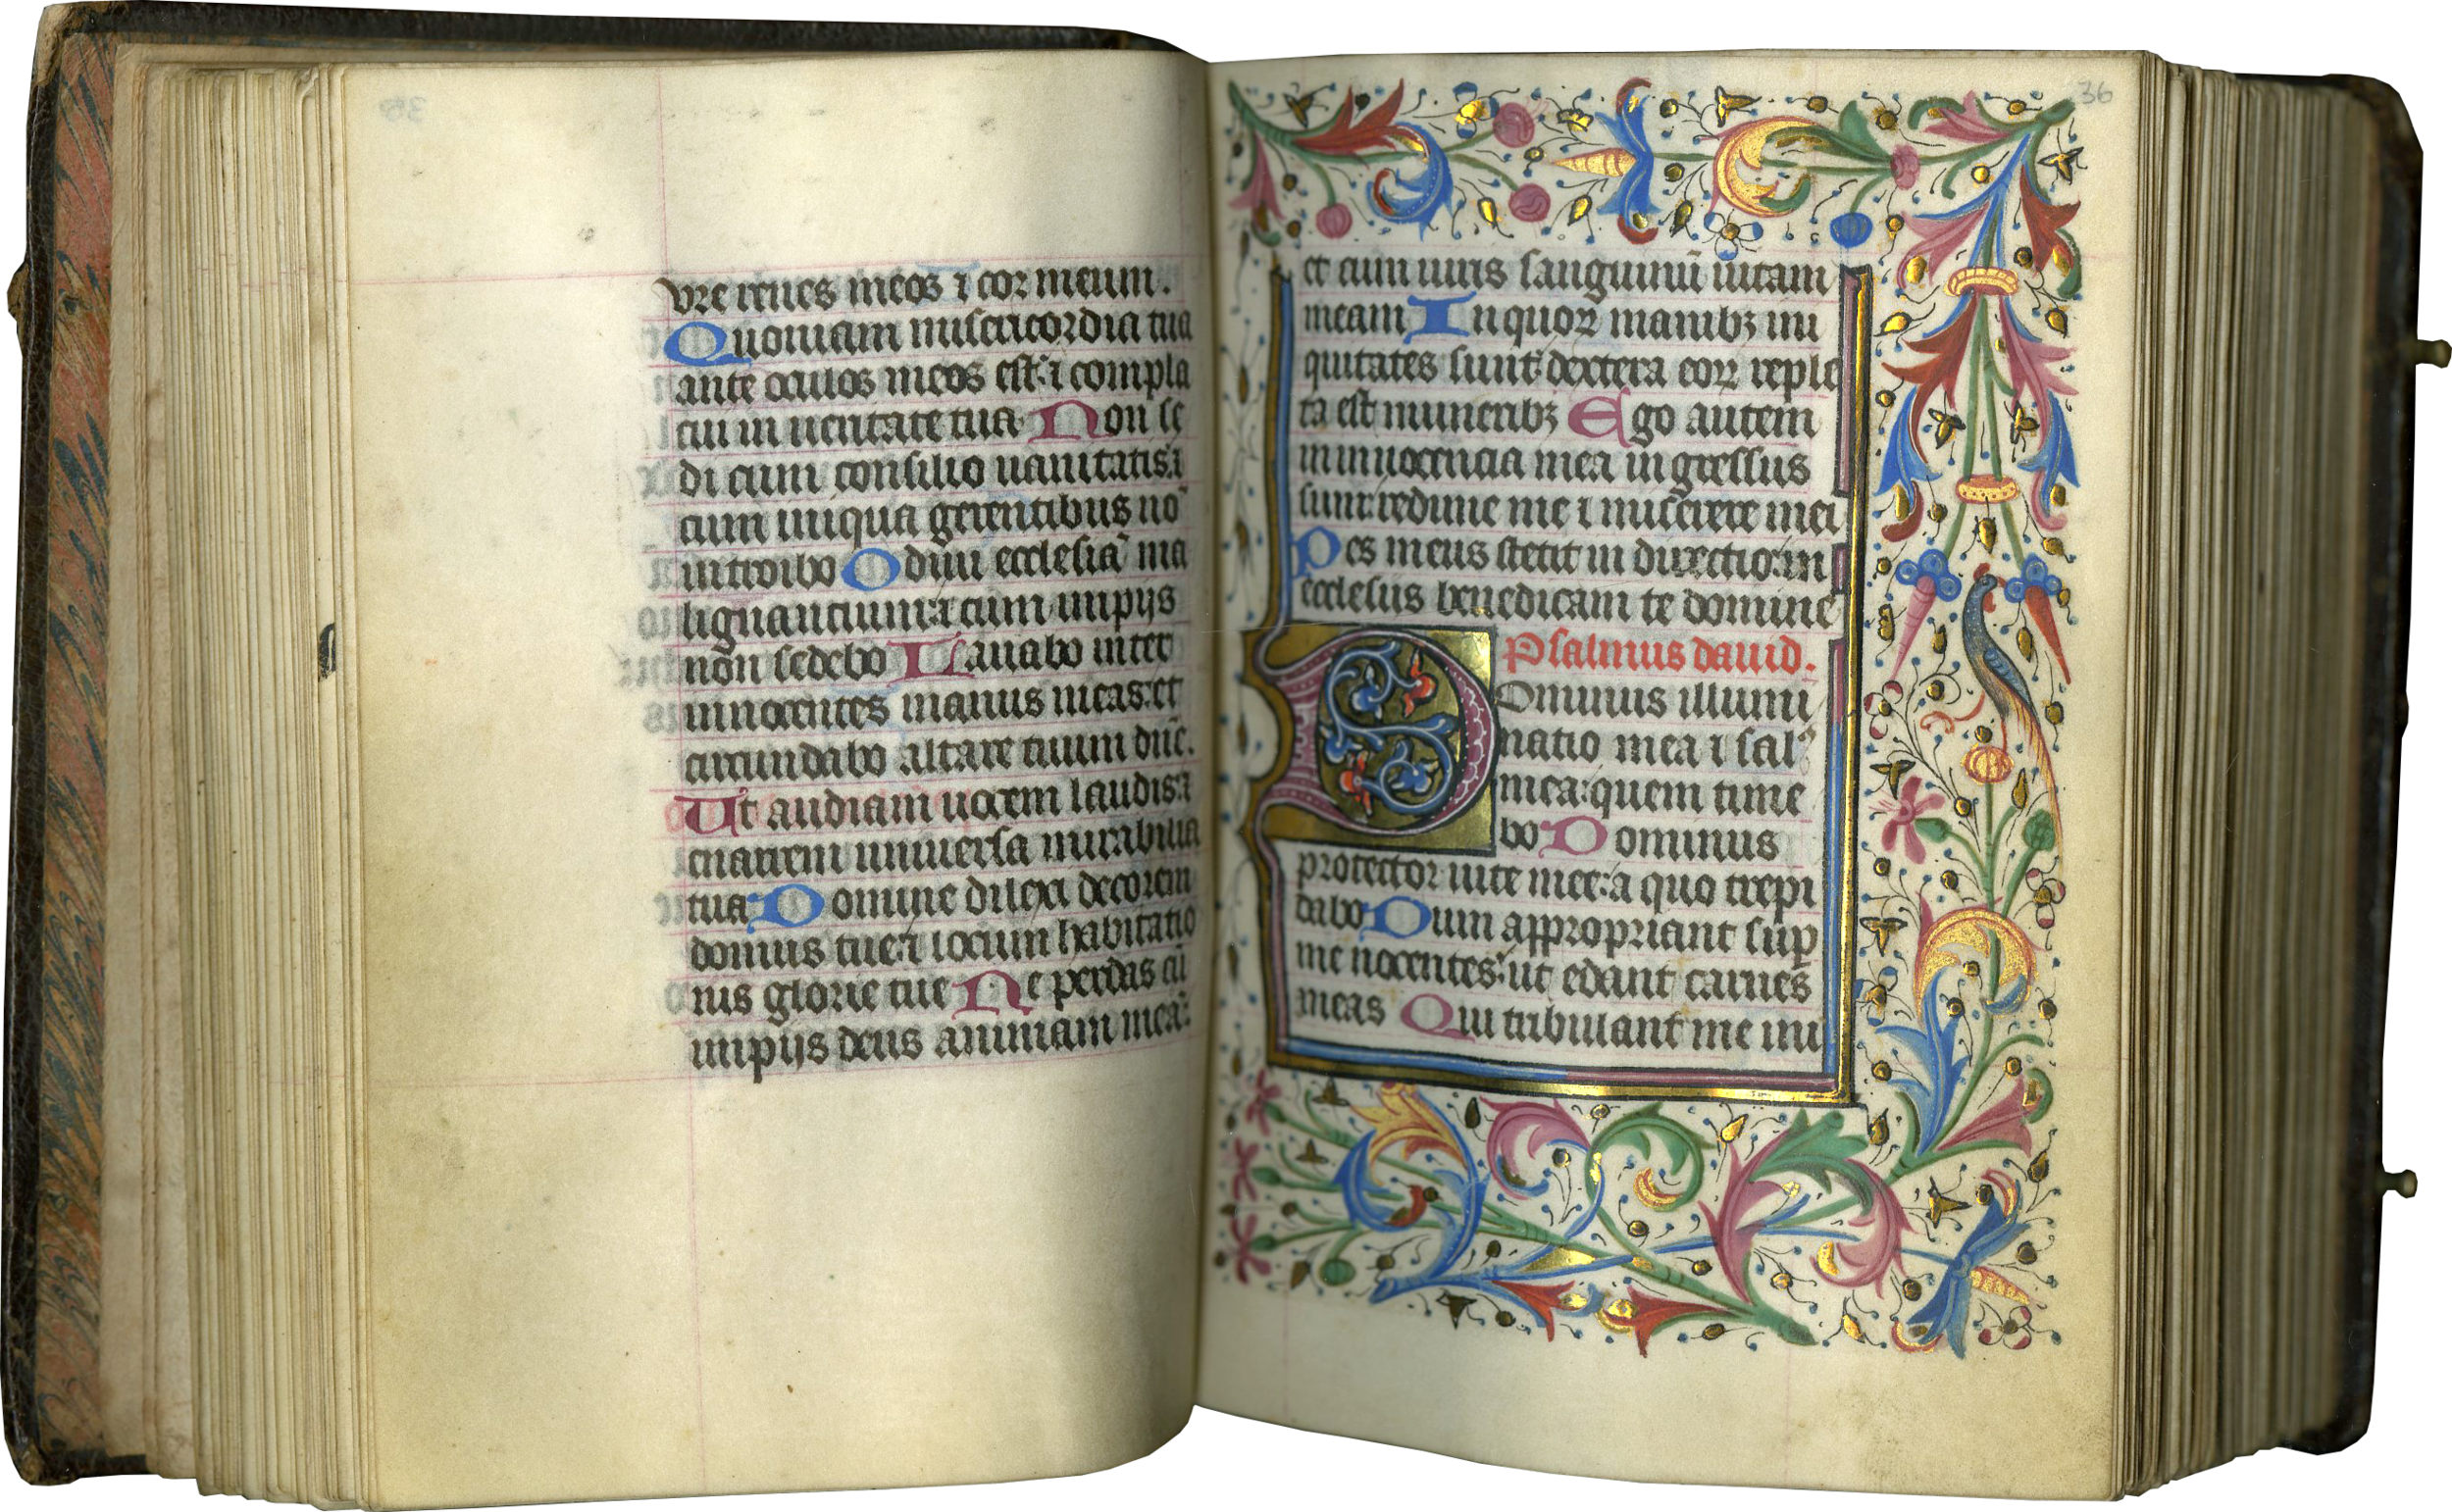 vre renes meos ⁊ cor meum.
Quoniam misericordia tua
ante oculos meos est: ⁊ compla
cui in ueritate tua Non se
di cum consilio uanitatis: ⁊
cum iniqua gerentibus nō
introibo Odiui ecclesiā ma
lignantium: ⁊ cum impijs
non sedebo Lauabo inter
innocentes manus meas: et
circundabo altare tuum dn̄e.
Ut audiam uocem laudis: ⁊
enarrem uniuersa mirabilia
tua Domine dilexi decorem
domus tue: ⁊ locum habitatio
nis glorie tue Ne perdas cū
impijs deus animam meā:
36
et cum uiris sanguinū uitam
meam In quoꝝ manibꝫ ini
quitates sunt: dextera eoꝝ reple
ta est muneribꝫ Ego autem
in innocencia mea ingressus
sum: redime me ⁊ miserere mei
Pes meus stetit in directio: in
ecclesiis benedicam te domine
Psalmus dauid.
Dominus illumi
natio mea ⁊ salꝰ
mea: quem time
bo Dominus
protector uite mee: a quo trepi
dabo Dum appropriant suꝑ
me nocentes: ut edant carnes
meas Qui tribulant me ini